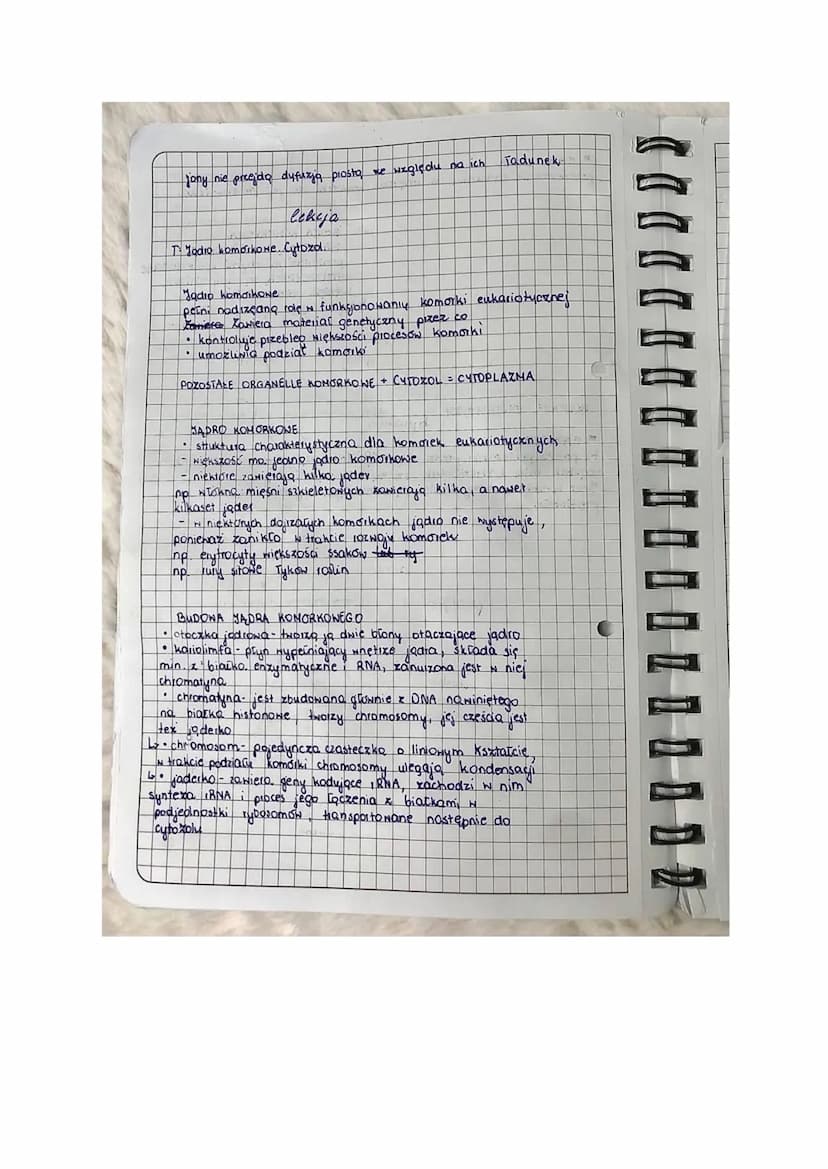 jony nie przejdą dyfuzją prostą ze względu na ich ładunek
lekcja
T: Jądro komórkowe. Cytozol.
Jądro komórkowe
pełni nadrzędną rolę w funkcjonowaniu komórki eukariotycznej
zawiera materiał genetyczny przez co
• kontroluje przebieg większości procesów komórki
• umożliwia podział komórki
POZOSTAŁE ORGANELLE KOMÓRKOWE + CYTOZOL = CYTOPLAZMA
JĄDRO KOMÓRKOWE
• struktura charakterystyczna dla komórek eukariotycznych
- większość ma jedno jądro komórkowe
- niektóre zawierają kilka jąder
np. włókna mięśni szkieletowych zawierają kilka, a nawet
kilkaset jąder
- w niektórych dojrzałych komórkach jądro nie występuje,
ponieważ zanikło w trakcie rozwoju komórek
np. erytrocyty większości ssaków
np. rury sitowe łyków roślin
BUDOWA JĄDRA KOMÓRKOWEGO
• otoczka jądrowa - tworzą ją dwie błony otaczające jądro
• kariolimfa - płyn wypełniający wnętrze jądra, składa się
min. z białka enzymatyczne i RNA, zanurzona jest w niej
chromatyna
• chromatyna - jest zbudowana głównie z DNA nawiniętego
na białka histonowe, tworzy chromosomy, jej częścią jest
też jąderko
↳ • chromosom - pojedyncza cząsteczka o liniowym kształcie,
w trakcie podziału komórki chromosomy ulegają kondensacji
↳ • jąderko - zawiera geny kodujące rRNA, zachodzi w nim
synteza rRNA i proces jego łączenia z białkami w
podjednostki rybosomów, transportowane następnie do
cytozolu